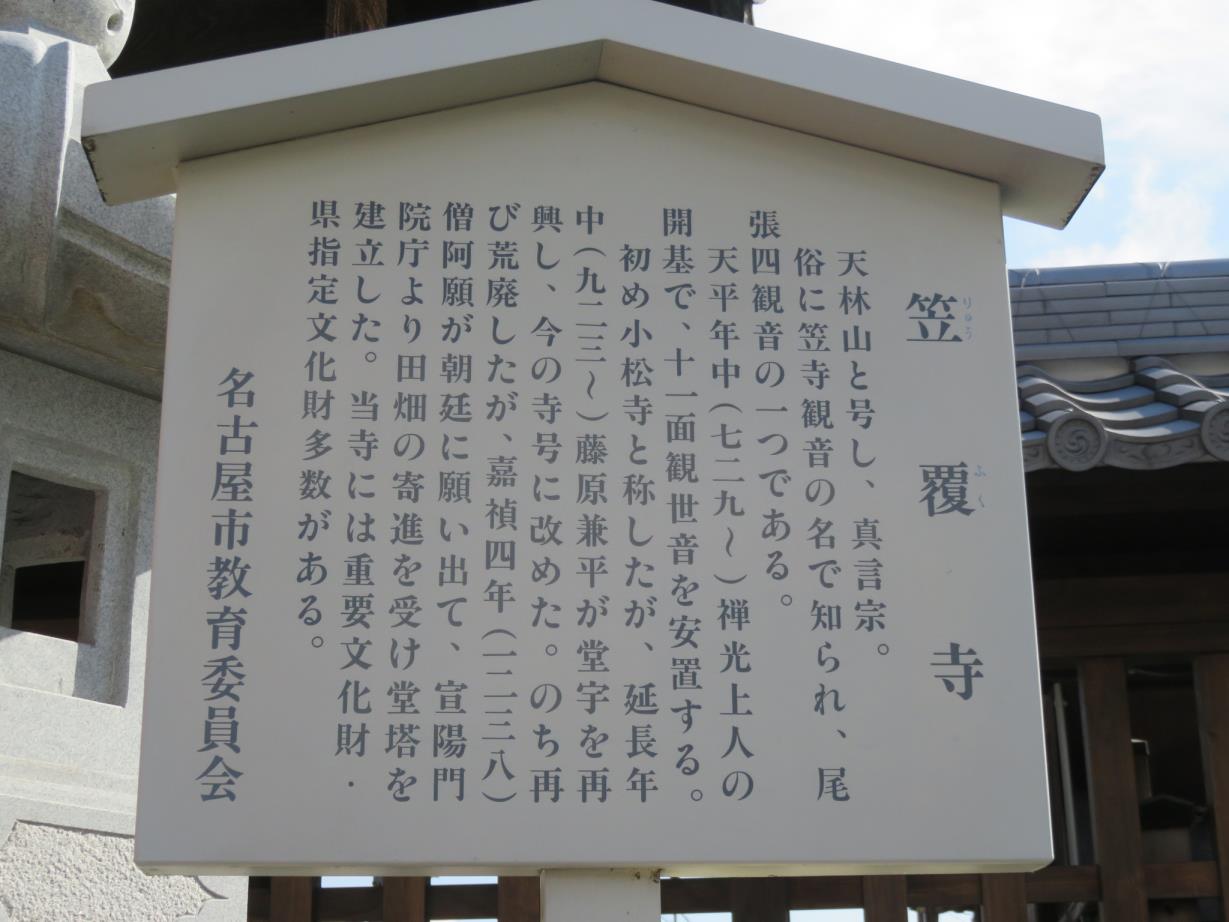 笠覆寺
りゅう
ふく
天林山と号し、真言宗。
俗に笠寺観音の名で知られ、尾
張四観音の一つである。
天平年中(七二九〜)禅光上人の
開基で、十一面観世音を安置する。
初め小松寺と称したが、延長年
中(九二三〜)藤原兼平が堂宇を再
興し、今の寺号に改めた。のち再
び荒廃したが、嘉禎四年(一二三八)
僧阿願が朝廷に願い出て、宣陽門
院庁より田畑の寄進を受け堂塔を
建立した。当寺には重要文化財・
県指定文化財多数がある。
名古屋市教育委員会